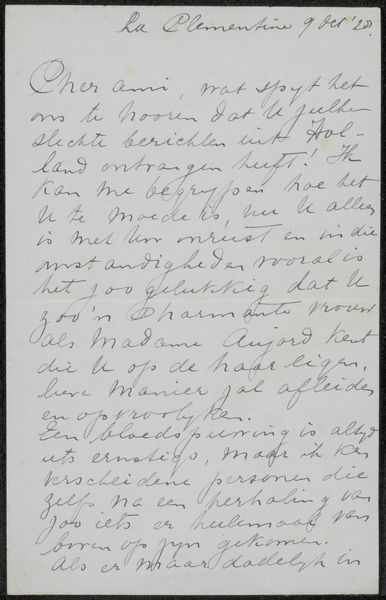 La Clementine 9 Oct '20.
Cher ami, wat spyt het
ons te hooren dat U zulke
slechte berichten uit Hol-
land ontvangen heeft! Ik
kan me begrypen hoe het
U te moede is, nu U alleen
is met Uw onrust en in die
omstandigheden vooral is
het zoo gelukkig dat U
zoo'n Charmante vrouw
als Madame kent
die U op de haar eigen,
lieve manier zal afleiden
en opvroolyken.
Een bloedspuwing is altyd
iets ernstigs, maar ik ken
verscheidene personen die
zelfs na een herhaling van
zoo iets er heelemaal van
boven op zyn gekomen.
Als er maar dadelyk in